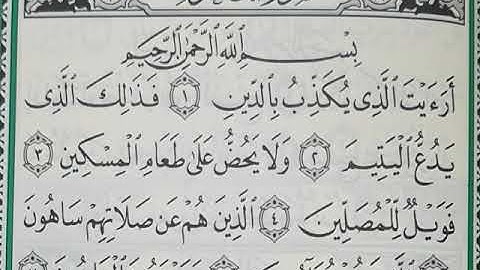 بِسْمِ ٱللَّهِ ٱلرَّحْمَٰنِ ٱلرَّحِيمِ
أَرَءَيْتَ ٱلَّذِى يُكَذِّبُ بِٱلدِّينِ ١ فَذَٰلِكَ ٱلَّذِى
يَدُعُّ ٱلْيَتِيمَ ٢ وَلَا يَحُضُّ عَلَىٰ طَعَامِ ٱلْمِسْكِينِ ٣
فَوَيْلٌ لِّلْمُصَلِّينَ ٤ ٱلَّذِينَ هُمْ عَن صَلَاتِهِمْ سَاهُونَ